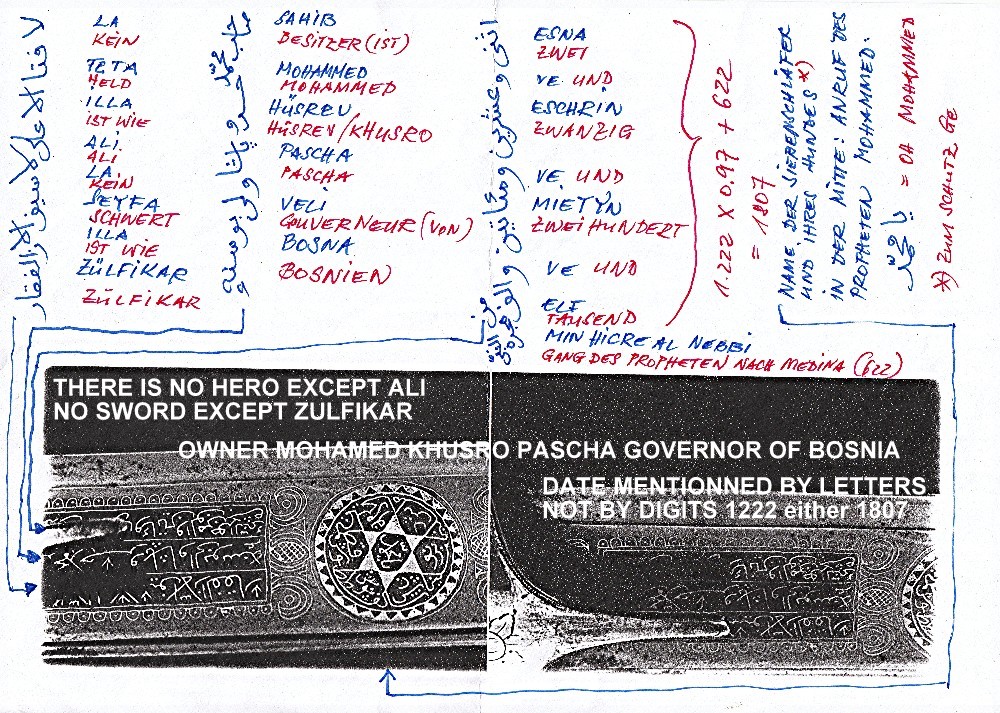 لا فتا الا علی لا سیف الا زوالفقار
LA
KEIN
TETA
HELD
ILLA
IST WIE
ALI
ALI
LA
KEIN
SEYFA
SCHWERT
ILLA
IST WIE
ZÜLFIKAR
ZÜLFIKAR
صاحب محمد خسرو پاشا والی بوسنه
SAHIB
BESITZER (IST)
MOHAMMED
MOHAMMED
HÜSREV
HÜSREV/KHUSRO
PASCHA
PASCHA
VELI
GOUVERNEUR (VON)
BOSNA
BOSNIEN
اثنی و عشرین ومأتین والف
ESNA
ZWEI
VE UND
ESCHRIN
ZWANZIG
VE UND
MIETYN
ZWEIHUNDERT
VE UND
ELF
TAUSEND
MIN HICRE AL NEBBI
GANG DES PROPHETEN NACH MEDINA (622)
1.222 X 0.97 + 622
= 1807
NAME DER SIEBENSCHLÄFER
UND IHRES HUNDES *)
IN DER MITTE: ANRUF DES
PROPHETEN MOHAMMED:
یا محمد = OH MOHAMMED
*) ZUM SCHUTZ GE
THERE IS NO HERO EXCEPT ALI
NO SWORD EXCEPT ZULFIKAR
OWNER MOHAMED KHUSRO PASCHA GOVERNOR OF BOSNIA
DATE MENTIONNED BY LETTERS
NOT BY DIGITS 1222 either 1807